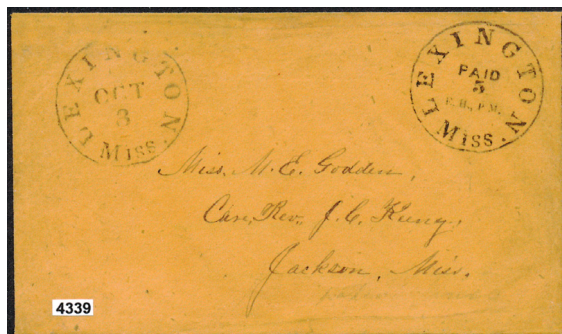 LEXINGTON
OCT
3
Miss.
LEXINGTON
PAID
5
P.M.
Miss.
Miss. M. E. Godden,
Care, Rev. J. C.
Jackson, Miss.
4339